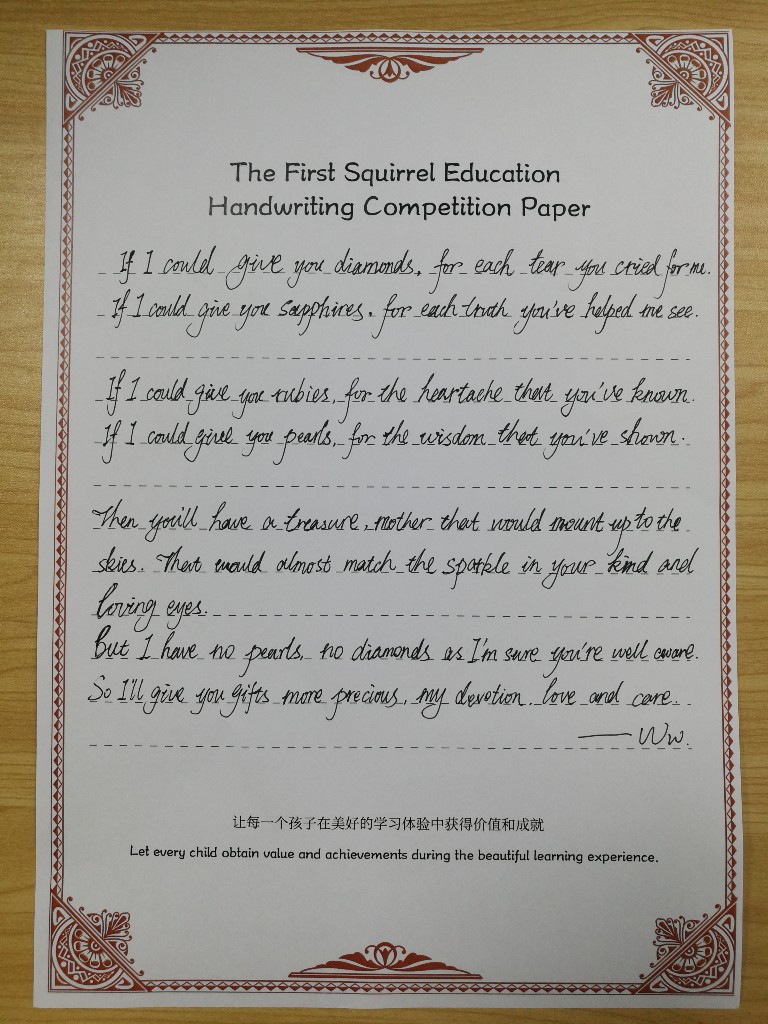 The First Squirrel Education
Handwriting Competition Paper
If I could give you diamonds, for each tear you cried for me.
If I could give you sapphires, for each truth you've helped me see.
If I could give you rubies, for the heartache that you've known.
If I could give you pearls, for the wisdom that you've shown.
Then you'll have a treasure, mother that would mount up to the
skies. That would almost match the sparkle in your kind and
loving eyes.
But I have no pearls, no diamonds as I'm sure you're well aware.
So I'll give you gifts more precious, my devotion. love and care.
—— Ww.
让每一个孩子在美好的学习体验中获得价值和成就
Let every child obtain value and achievements during the beautiful learning experience.